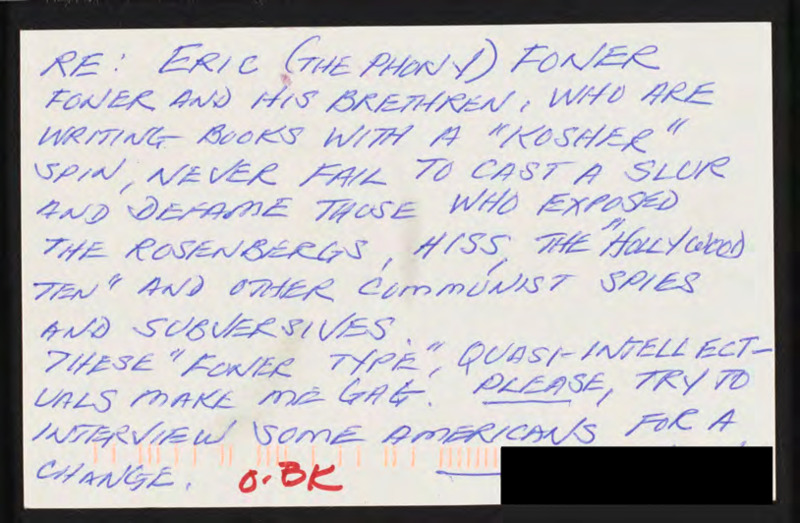 RE: ERIC (THE PHONY) FONER
FONER AND HIS BRETHREN, WHO ARE
WRITING BOOKS WITH A "KOSHER"
SPIN, NEVER FAIL TO CAST A SLUR
AND DEFAME THOSE WHO EXPOSED
THE ROSENBERGS, HISS, THE "HOLLYWOOD
TEN" AND OTHER COMMUNIST SPIES
AND SUBVERSIVES.
THESE "FONER TYPE", QUASI-INTELLECT-
UALS MAKE ME GAG. PLEASE, TRY TO
INTERVIEW SOME AMERICANS FOR A
CHANGE. O.BK